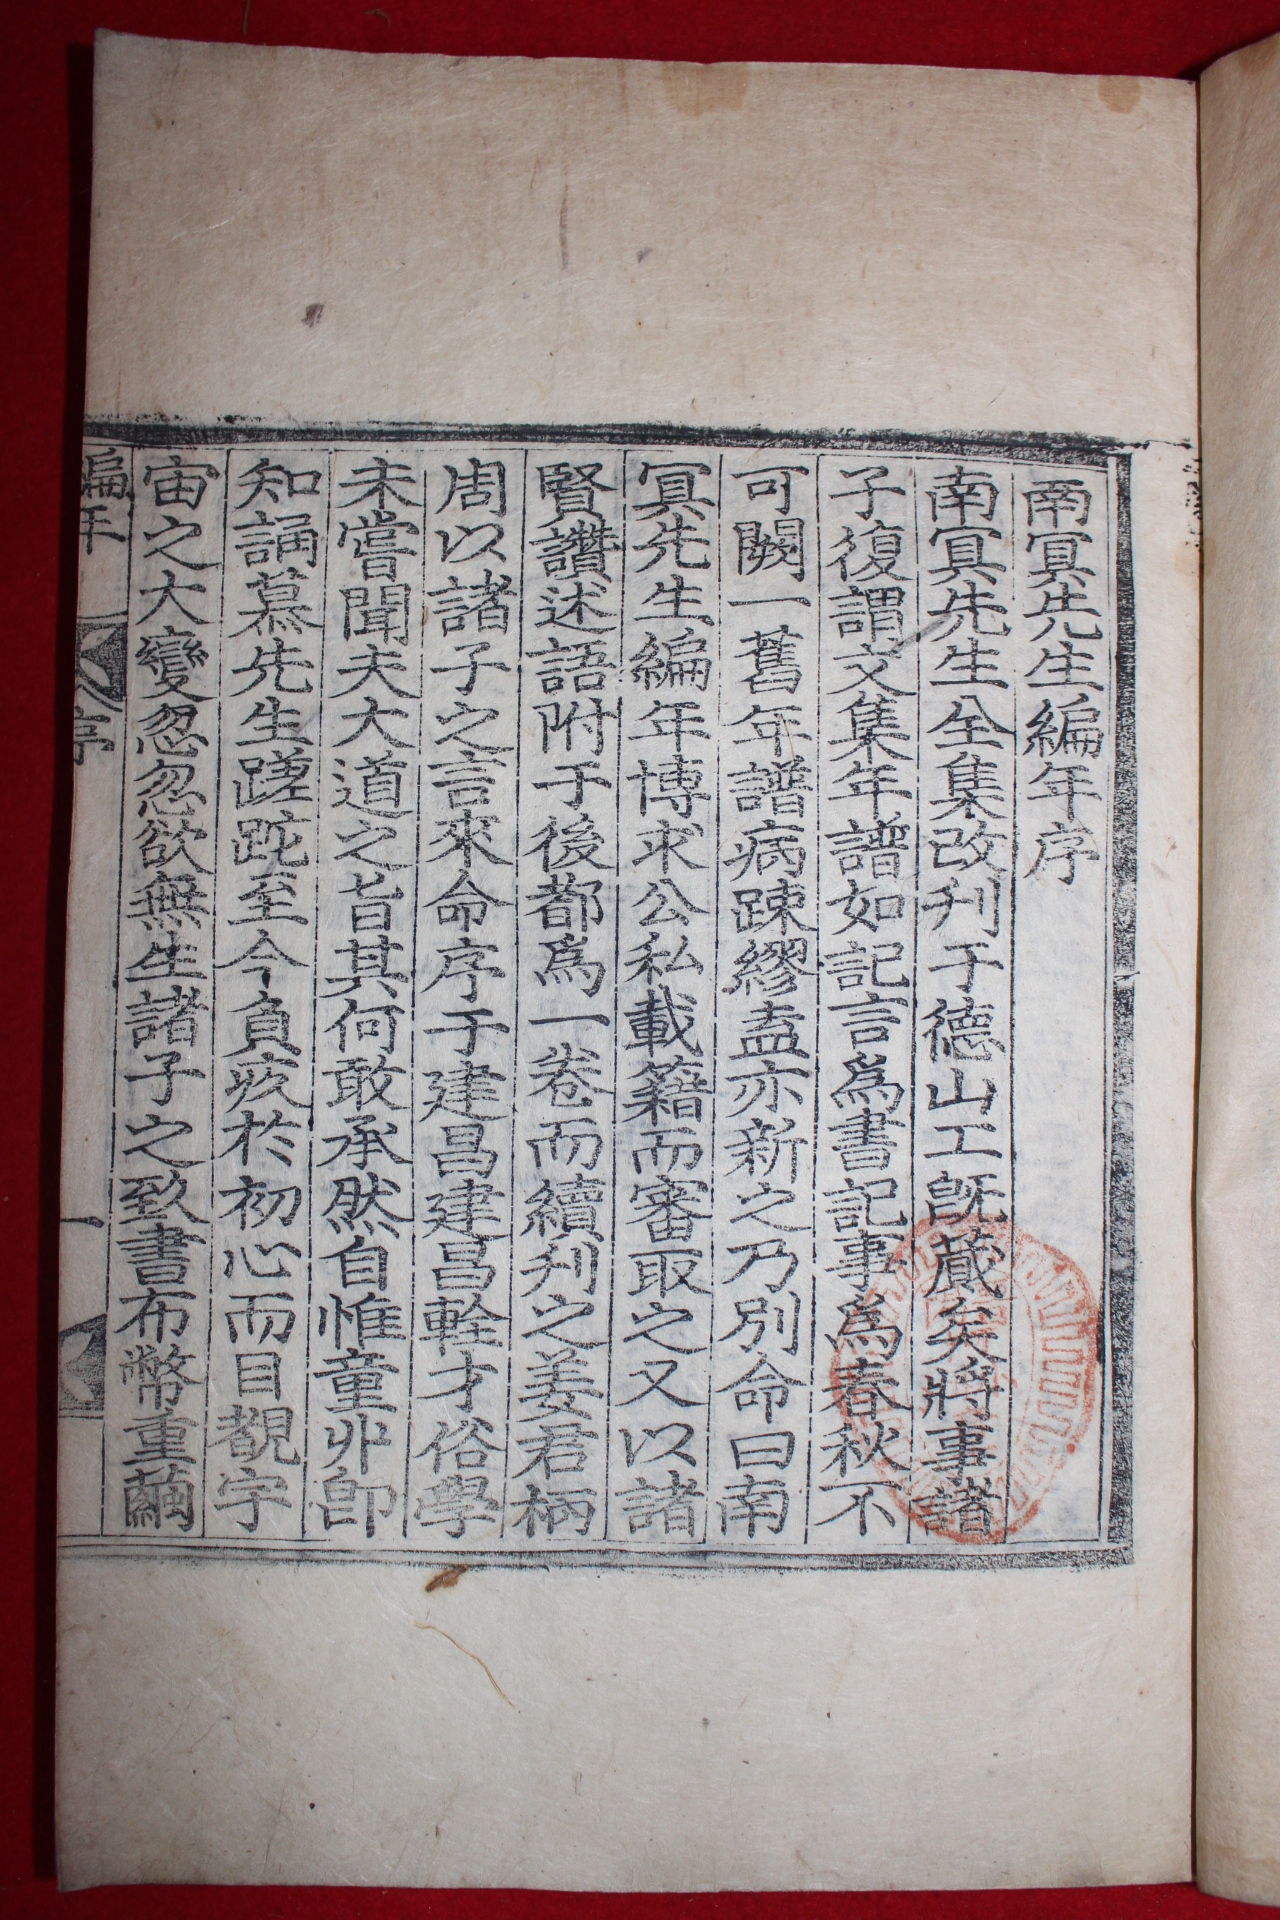 南冥先生編年序
南冥先生全集改刋于德山工旣蕆矣將事諸
子復謂文集年譜如記言爲書記事爲春秋不
可闕一舊年譜病踈繆盍亦新之乃別命曰南
冥先生編年博求公私載籍而審取之又以諸
賢讚述語附于後都爲一卷而續刋之姜君柄
周以諸子之言來命序于建昌建昌輇才俗學
未嘗聞夫大道之旨其何敢承然自惟童丱卽
知誦慕先生蹉跎至今負疚於初心而目覩宇
宙之大變忽忽欲無生諸子之致書布幣重繭
編年 序 一